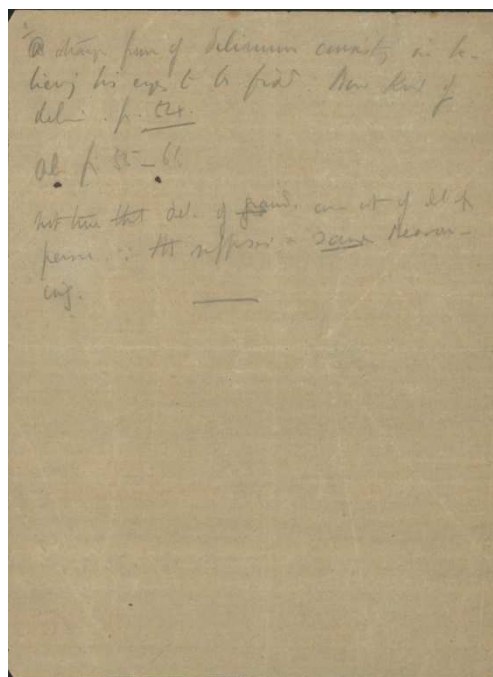 A strange form of delirium consists in be-
lieving his eyes to be fixed. Same kind of
deli. p. 524.
Ob. p. 55 – 65
not true that del. of grand. come out of del. of
persec. ∵ tht supposes a sane reason-
ing.